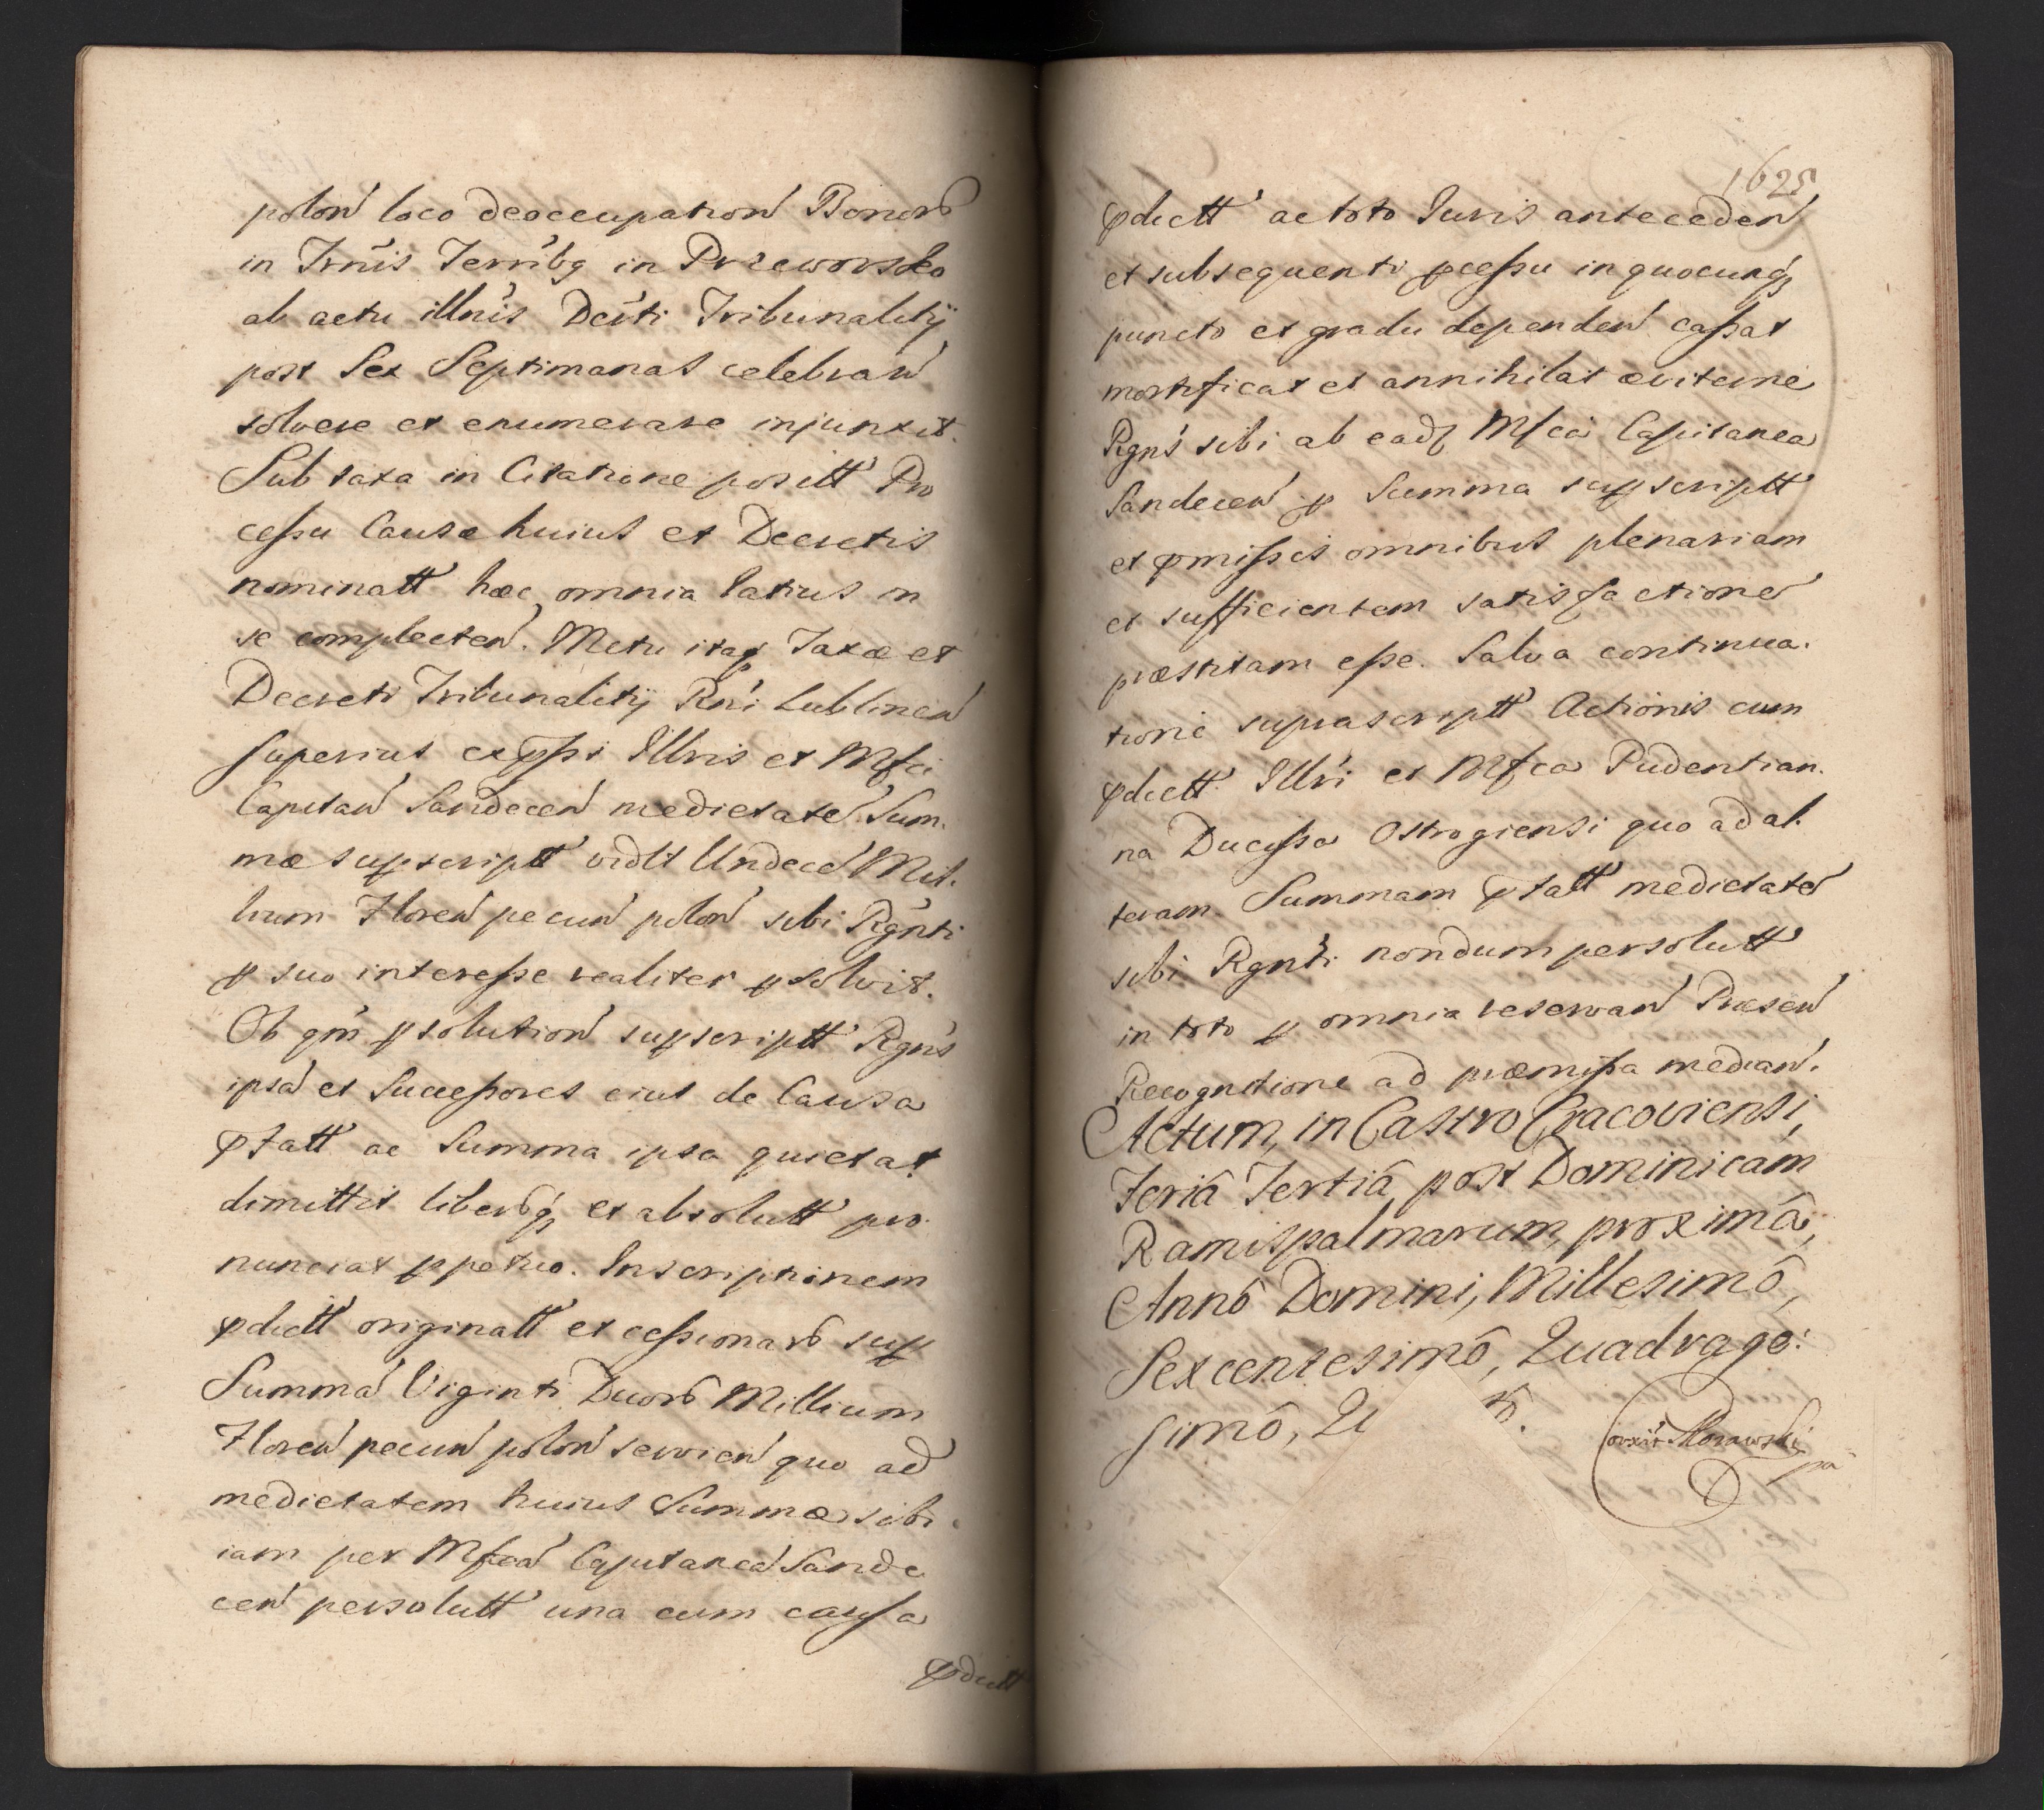 polon̄ loco deoccupation̄ Bonor̄
in Trn̄is Terrrib9 in Przeworsko
ab actu illn̄is Dec̄ti Tribunalitij
post Sex Septimanas celebran̄
solvere et enumerare injunxit.
Sub taxa in Citatione positt Pro
cessu Causæ huius et Decretis
nominatt hæc omnia latius in
se complecten̄. Metu itaq Taxæ et
Decreti Tribunalitij Rn̄i Lublinen̄
superius exp̄ssi Illris et Mfci
Capitan̄ Sandecen̄ medietatē Sum.
mæ sup̱script vidlt Undecē Mil.
lium Floren̄ pecun̄ polon̄ sibi Rgn̄ti
p̱ suo interesse realiter p̱solvit.
Ob qm̄ p̱solution̄ sup̱scriptt Rgn̄s
ipsā et Successores eius de Causa
p̄fatt ac Summa ipsa quietat
dimittit liberosq et absolutt pro.
nunciat p̱petuo. Inscriptionem
p̄dictt originatt et cessionar̄ sup̱
Summā Viginti Duor̄ Millium
Floren̄ pecun̄ polon̄ servien̄ quo ad
medietatem huius Summæ sibi
iam per Mfcā Capitaneā Sande
cen̄ persolutt una cum causa
p̄dictt
1625
p̄dictt ac toto Juris anteceden̄
et subsequenti p̱cessu in quocunq
puncto et gradu dependen̄ cassat
mortificat et annihilat æviterne
Rgn̄s sibi ab eadꝫ Mfca Capitanea
Sandecen̄ p̱ Summa sup̱scriptt
et p̄missis omnibus plenariam
et sufficientem satisfactionē
præstitam esse. Salva continua.
tione suprascriptt Actionis cum
p̄dictt Illri et Mfca Pudentian.
na Ducissa Ostrogiensi quo ad al.
teram Summam p̄fatt medietatē
sibi Rgn̄ti nondum persolutt
in toto p̱ omnia reservan̄ Præsen̄
Recognitione ad præmissa median̄.
Actum, in Castro Cracoviensi,
Feriâ Tertiâ, post Dominicam
Ramispalmarum, proximâ,
Annô Domini, Millesimô,
Sexcentesimô, Quadrage:
simô, Qu
Corxit Morawski